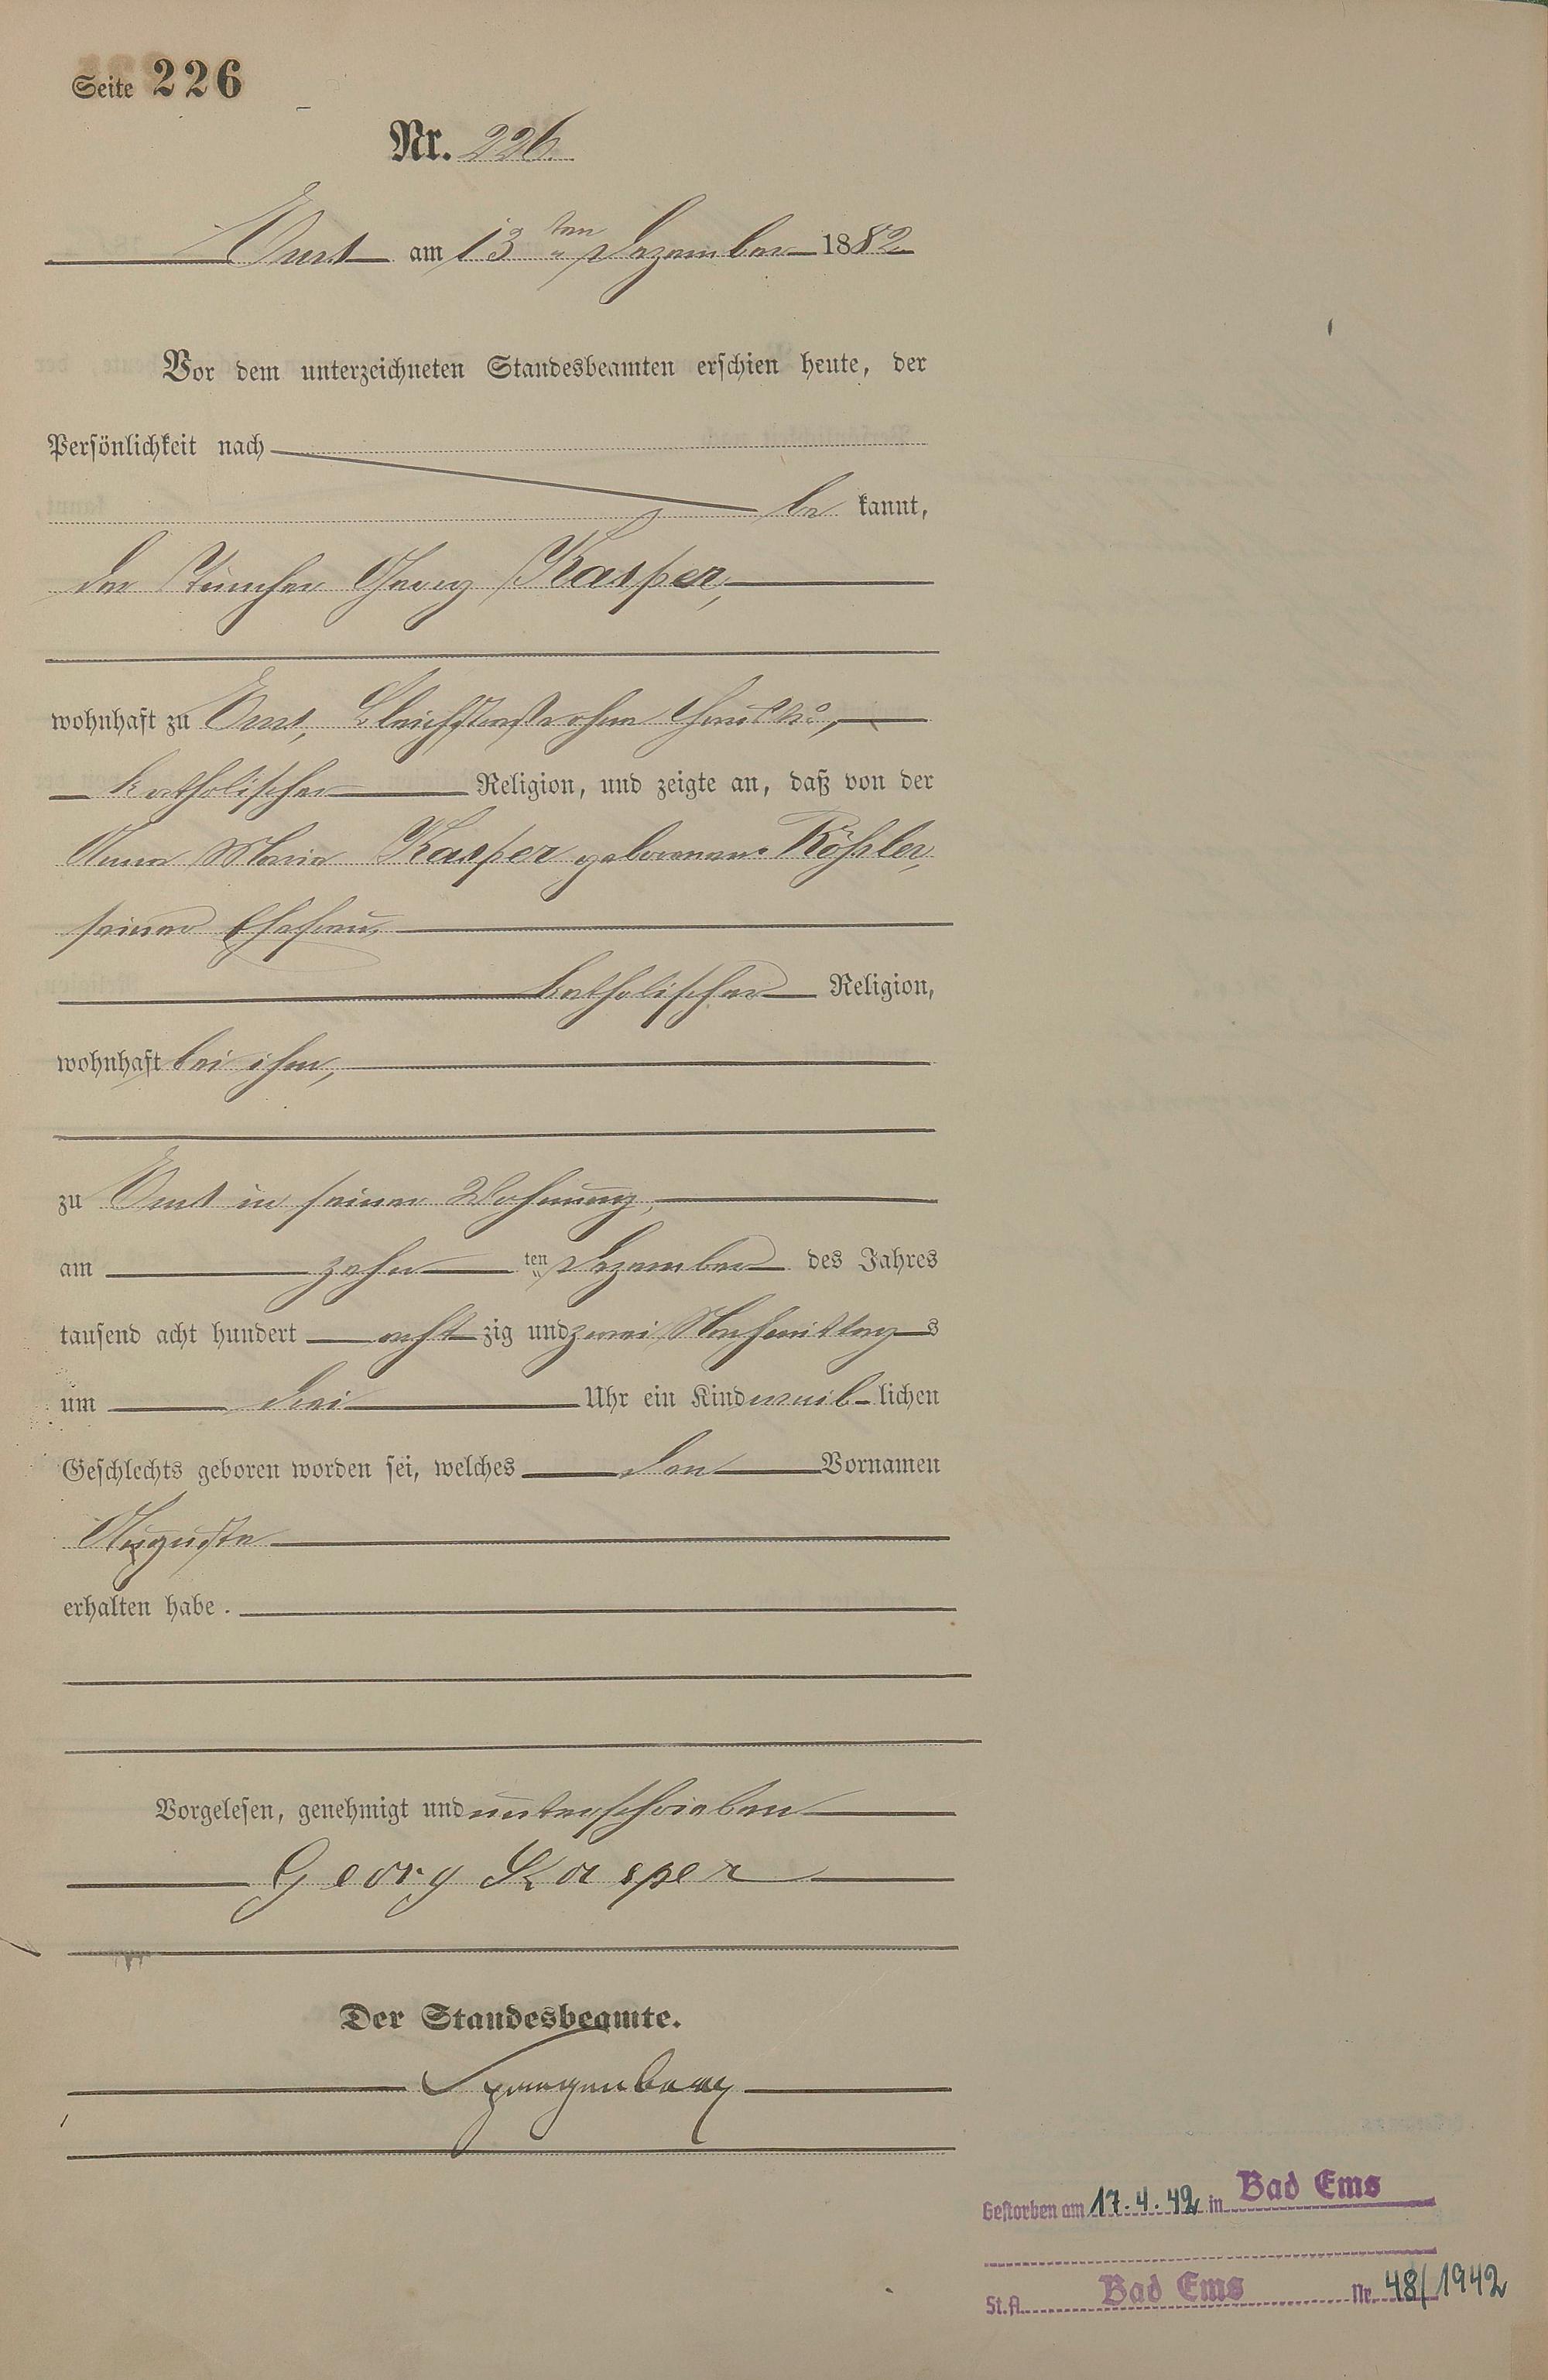 Seite 226
Nr. 226.
Ems am 13 ten Dezember 1882
Vor dem unterzeichneten Standesbeamten erschien heute, der
Persönlichkeit nach
be kannt,
der Tüncher Georg Kasper,
wohnhaft zu Ems, Bleichstraße ohne Haus No,
katholischer Religion, und zeigte an, daß von der
Anna Maria Kasper geborenen Rößler,
seiner Ehefrau,
katholischer Religion,
wohnhaft bei ihm,
zu Ems in seiner Wohnung,
am zehn ten Dezember des Jahres
tausend acht hundert acht zig und zwei Nachmittag s
um drei Uhr ein Kind weib- lichen
Geschlechts geboren worden sei, welches den Vornamen
Auguste
erhalten habe.
Vorgelesen, genehmigt und unterschrieben
Georg Kasper
Der Standesbeamte.
Spangenberg
Gestorben am 17.4.42 in Bad Ems
St.A. Bad Ems Nr. 48/1942